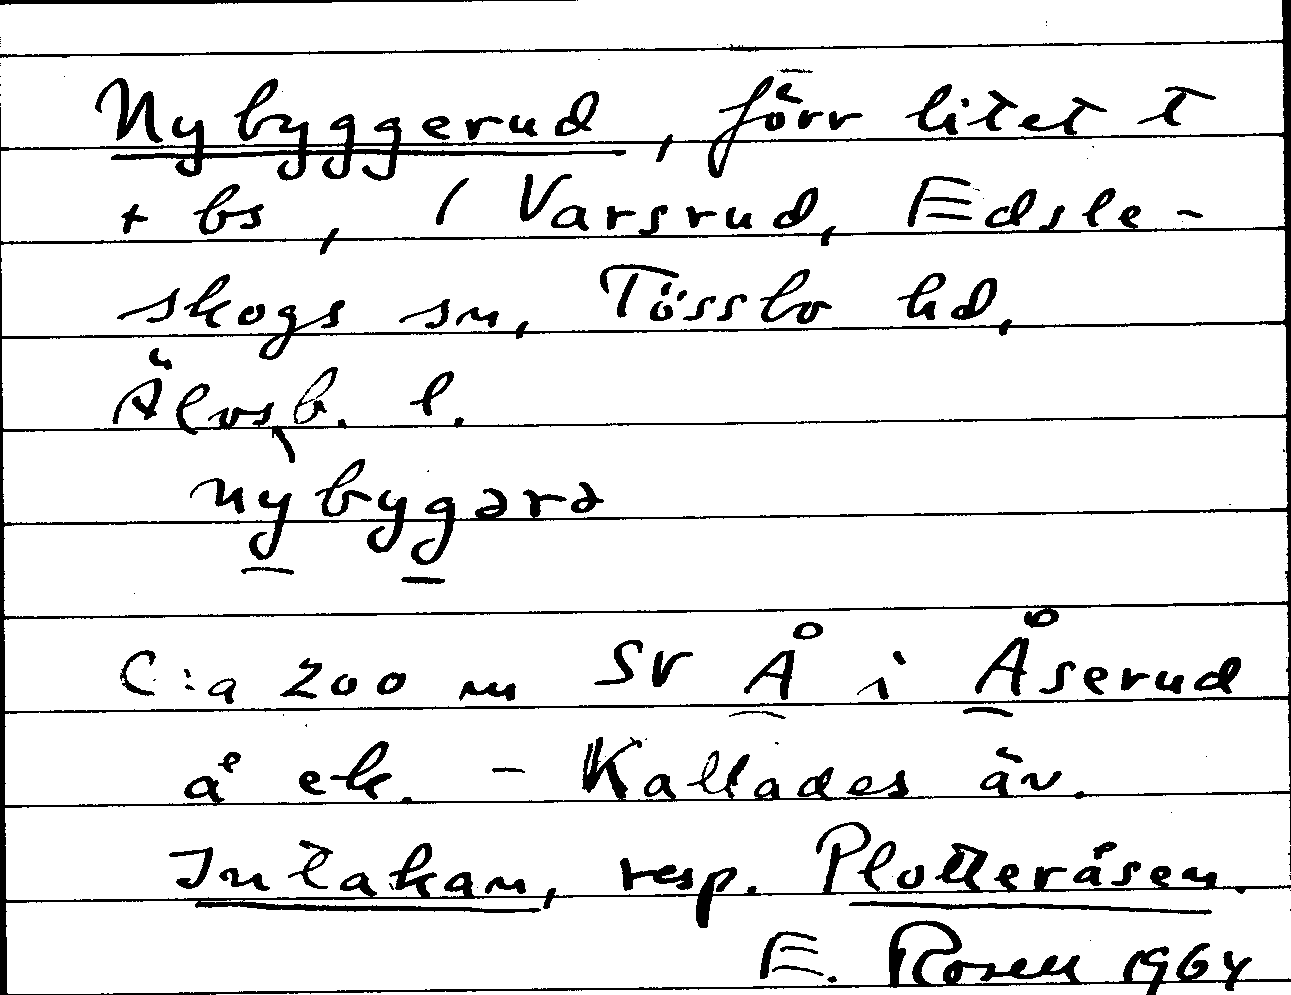 Nybyggerud, förr litet t
+ bs, i Varsrud, Edsle-
skogs sn, Tössbo hd,
Älvsb. l.
nybygərə
C:a 200 m SV Å i Åserud
å ek. - Kallades äv.
Intakan, resp. Plotteråsen.
E. Rosell 1964